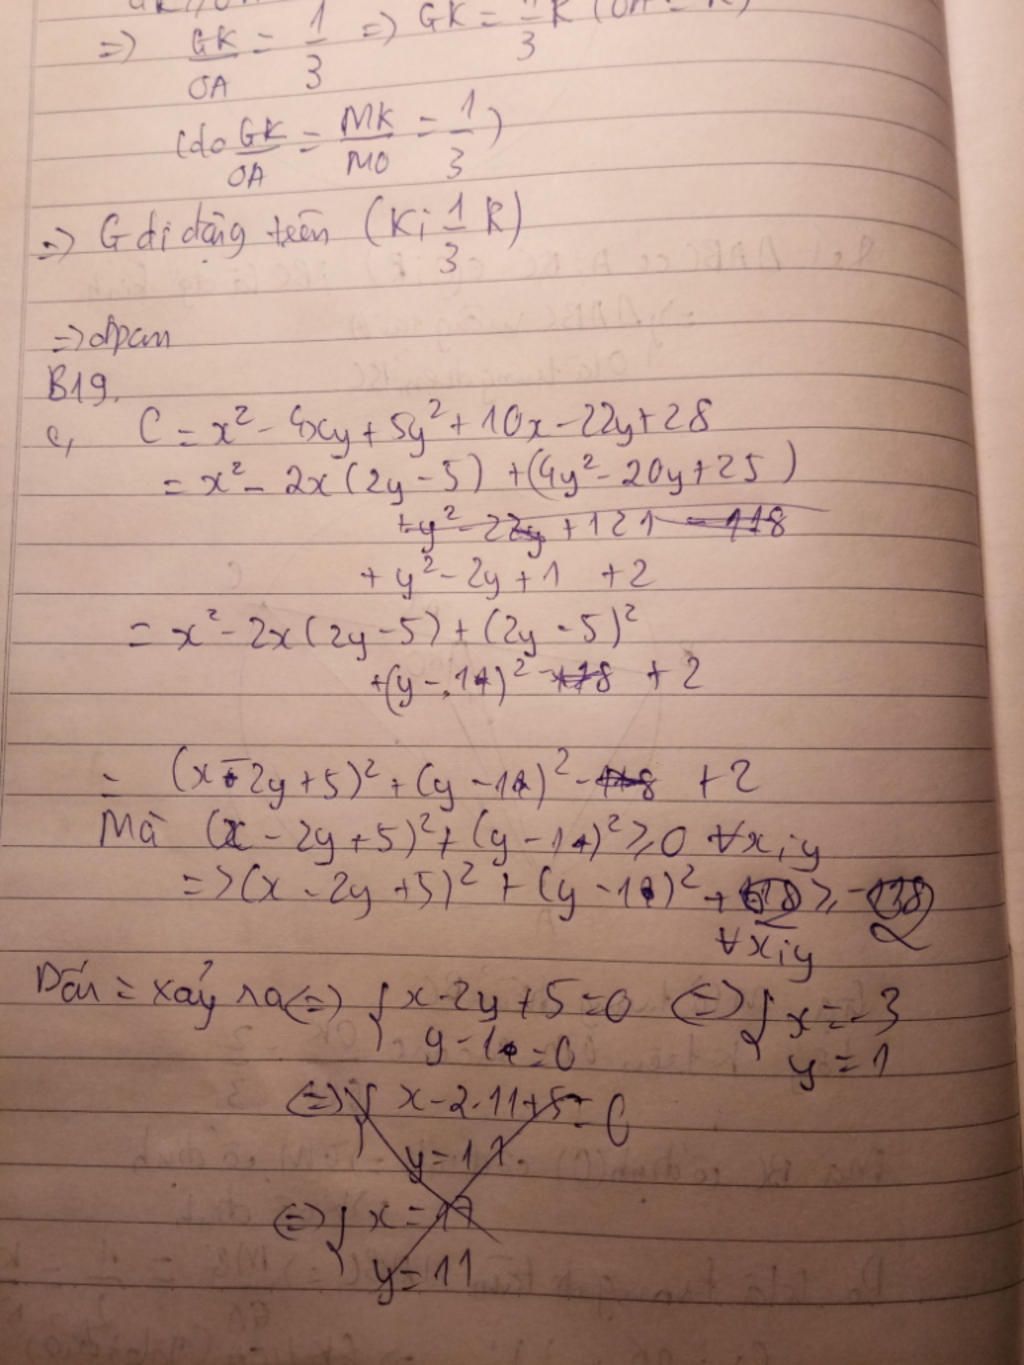 => GK/OA = 1/3 => GK = 1/3 R (OA = R)
(do GK/OA = MK/MO = 1/3)
=> G di động trên (K; 1/3 R)
=> đpcm
B19.
c, C = x² - 4xy + 5y² + 10x - 22y + 28
= x² - 2x(2y - 5) + (4y² - 20y + 25)
+ y² - 22y + 121 - 118
+ y² - 2y + 1 + 2
= x² - 2x(2y - 5) + (2y - 5)²
+ (y - 1)² + 2
= (x - 2y + 5)² + (y - 1)² + 2
Mà (x - 2y + 5)² + (y - 1)² ≥ 0 ∀x;y
=> (x - 2y + 5)² + (y - 1)² + 2 ≥ 2
∀x;y
Dấu = xảy ra <=> { x - 2y + 5 = 0 <=> { x = -3
y - 1 = 0 y = 1
<=> { x - 2.11 + 5 = 0
y = 11
<=> { x = 17
y = 11